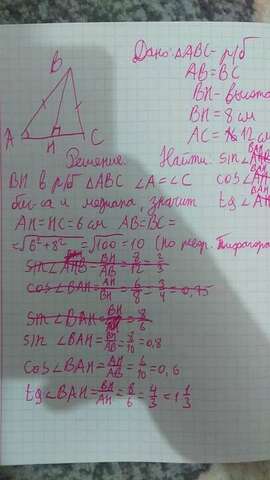 B
A
H
C
Дано: △ABC - р/б
AB = BC
BH - высота
BH = 8 см
AC = 12 см
Решение:
Найти: sin∠BAH
cos∠BAH
tg∠BAH
BH в р/б △ABC ∠A = ∠C
бис-са и медиана, значит
AH = HC = 6 см AB = BC =
= √6²+8² = √100 = 10 (по теор. Пифагора)
sin∠BAH = BH/AB = 8/12 = 2/3
cos∠BAH = AH/BH = 6/8 = 3/4 = 0,75
sin∠BAH = BH/AH = 8/6
sin ∠BAH = BH/AB = 8/10 = 0,8
cos∠BAH = AH/AB = 6/10 = 0,6
tg∠BAH = BH/AH = 8/6 = 4/3 = 1 1/3